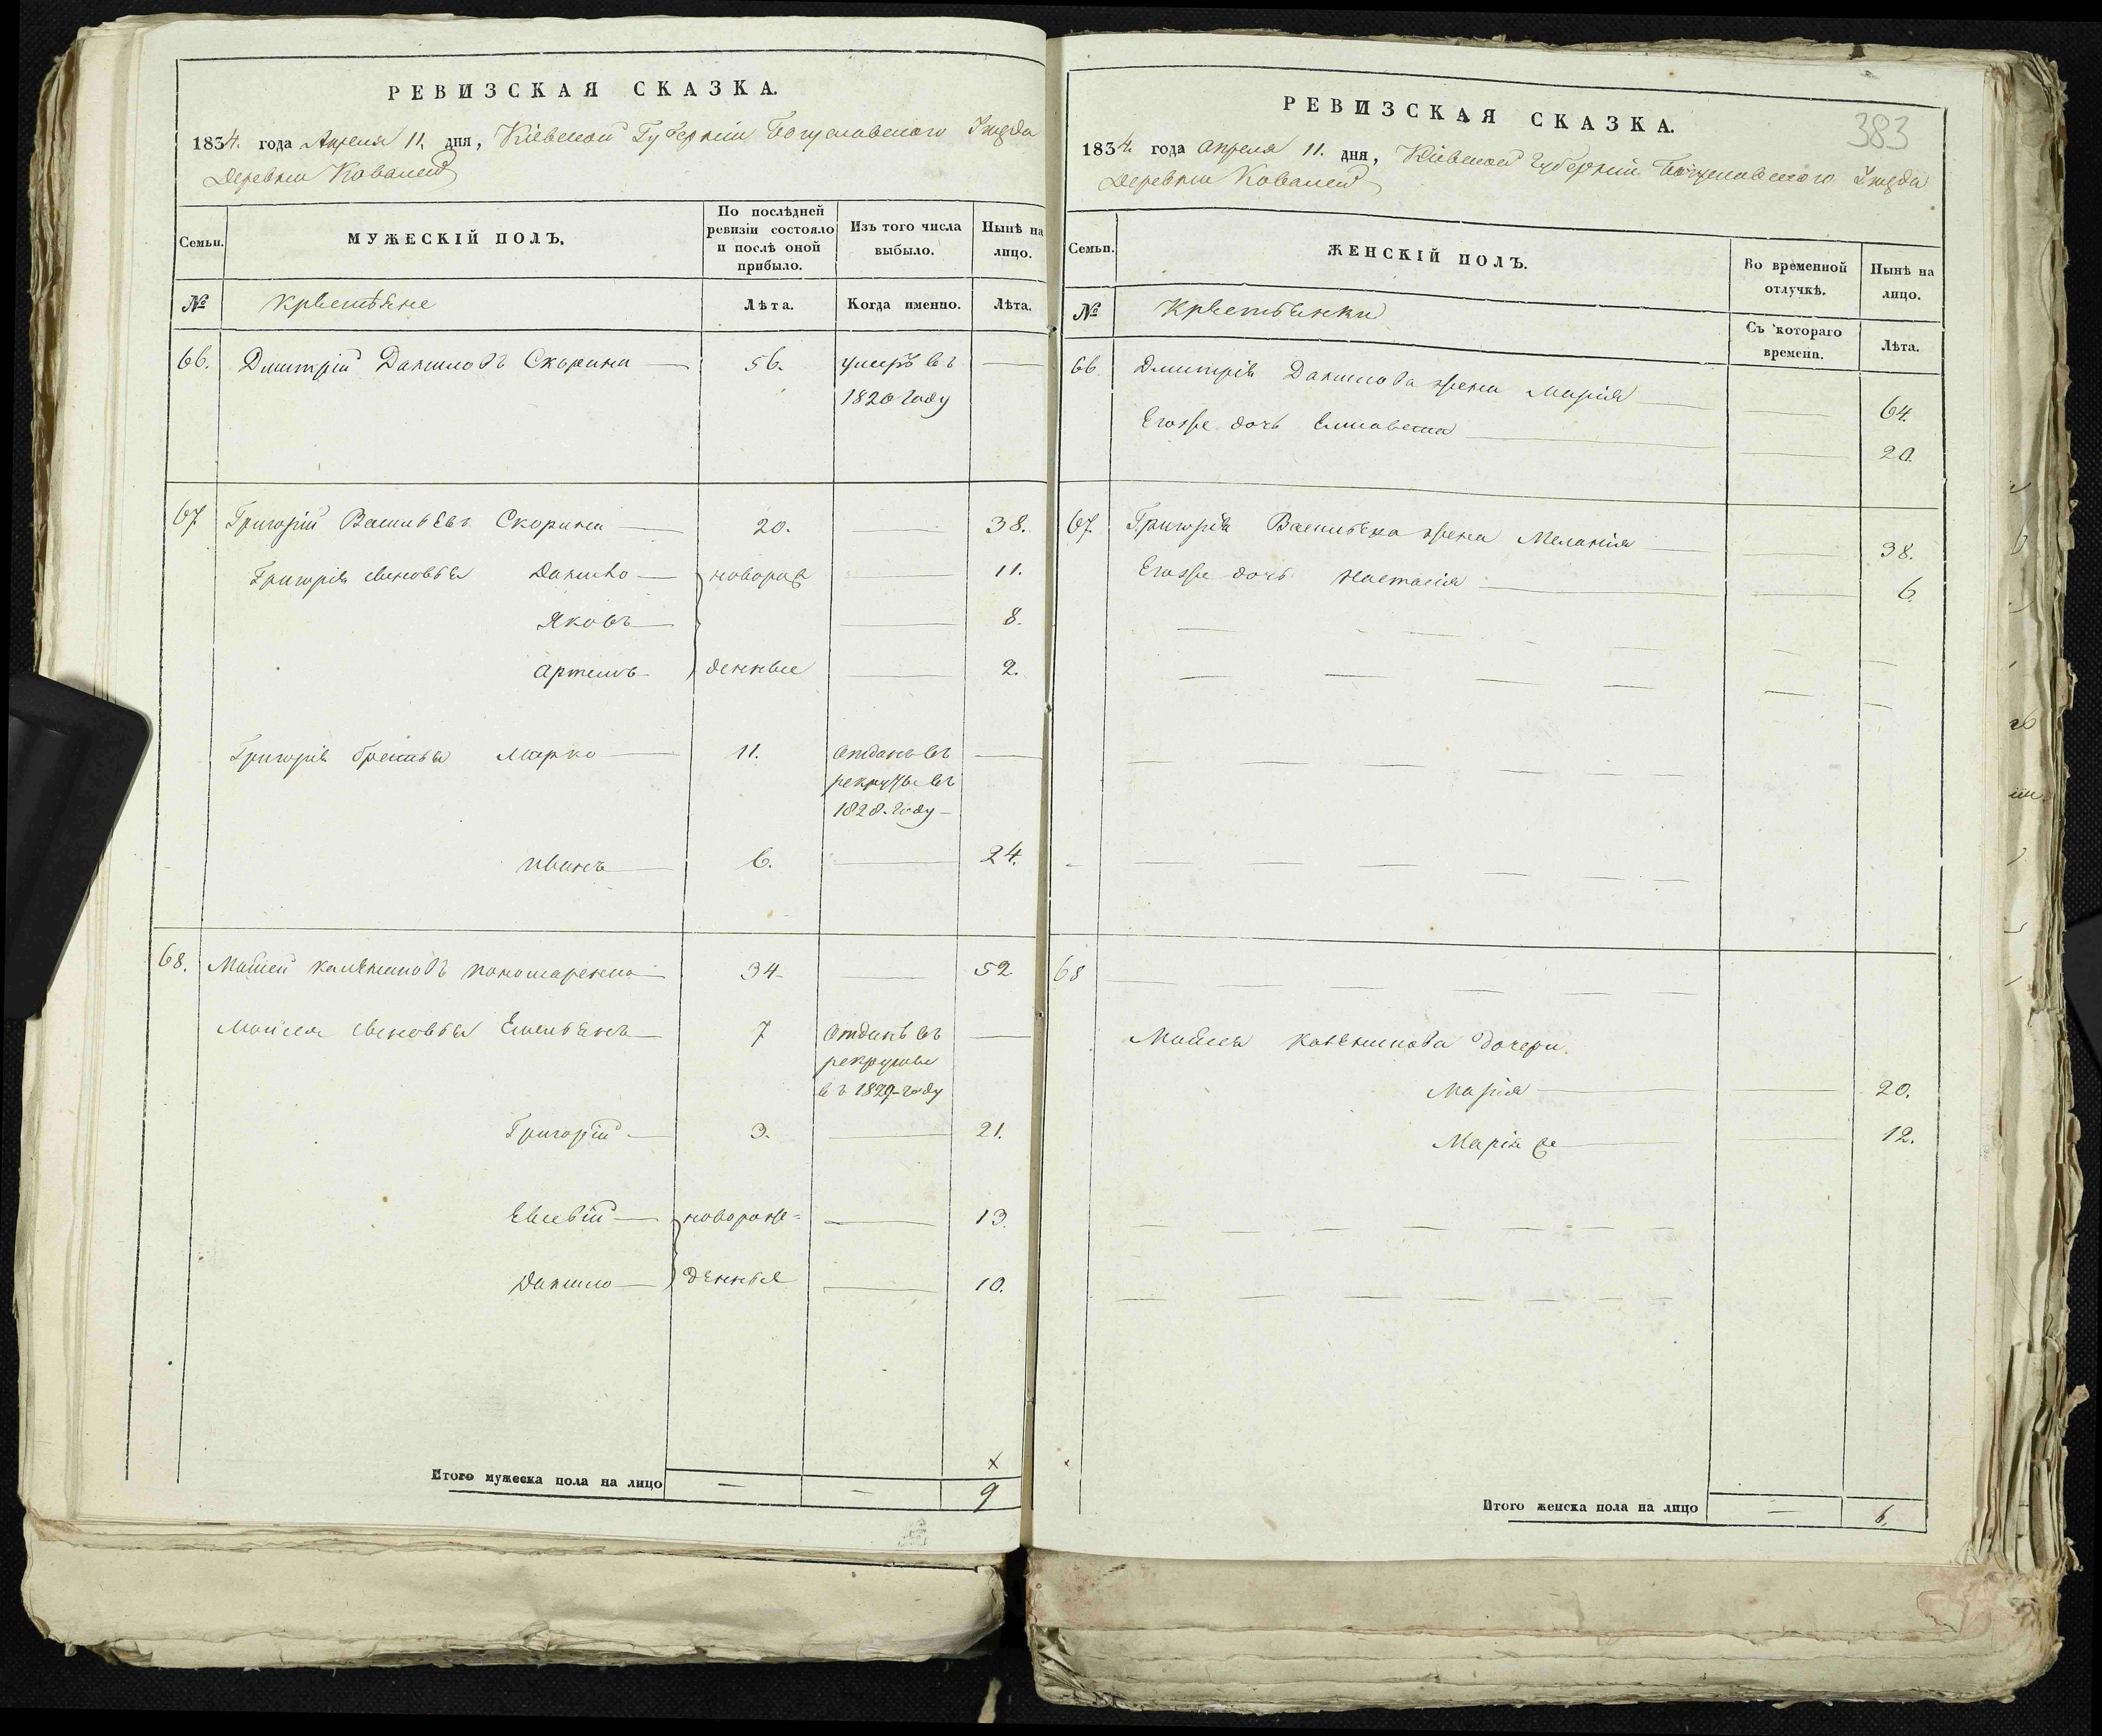 РЕВИЗСКАЯ СКАЗКА.
1834. года Апреля 11. дня, Кіевской Губерніи Богуславского Уезда
Деревни Ковалей
Семьи.
МУЖЕСКІЙ ПОЛЪ.
По послѣдней
ревизіи состояло
и послѣ оной
прибыло.
Изъ того числа
выбыло.
Нынѣ на
лицо.
№
крестьяне
Лѣта.
Когда именно.
Лѣта.
66. Дмитрій Даниловъ Скорина 56. умеръ въ
1820 году
67 Григорій Васильевъ Скорина 20. 38.
Григорія сыновья Данило новорож 11.
Яковъ 8.
Артемъ денные 2.
Григорія братья Марко 11. отданъ въ
рекруты въ
1828. году
Иванъ 6. 24.
68. Мойсей пономаренко 34 52
Мойсея сыновья Емельянъ 7 отданъ въ
рекруты
въ 1829 году
Григорій 3. 21.
Евсевій новорож= 13.
Данило денные 10.
Итого мужеска пола на лицо — — 9
РЕВИЗСКАЯ СКАЗКА.
383
1834. года апреля 11. дня, Кіевской Губерніи Богуславского Уезда
Деревни Ковалей
Семьи.
ЖЕНСКІЙ ПОЛЪ.
Во временной
отлучкѣ.
Нынѣ на
лицо.
№
Крестьянки
Съ котораго
времени.
Лѣта.
66. Дмитрія Данилова жена Марія 64.
Егоже дочь Елисавета 20.
67. Григорія Васильева жена Меланія 38.
Егоже дочь Настасія 6.
68
Мойсея дочери
Марія 20.
Марія же 12.
Итого женска пола на лицо — 6.